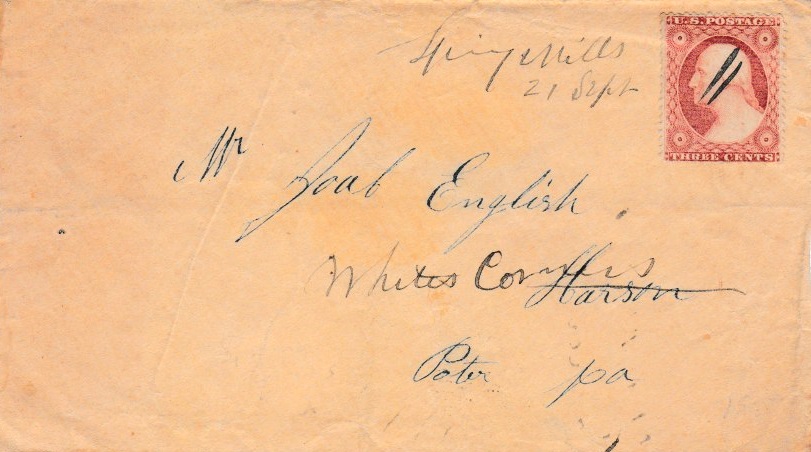 U.S. POSTAGE
Spring Mills
21 Sept
THREE CENTS
Mr Joab English
Whites Corners
Harson
Poter pa